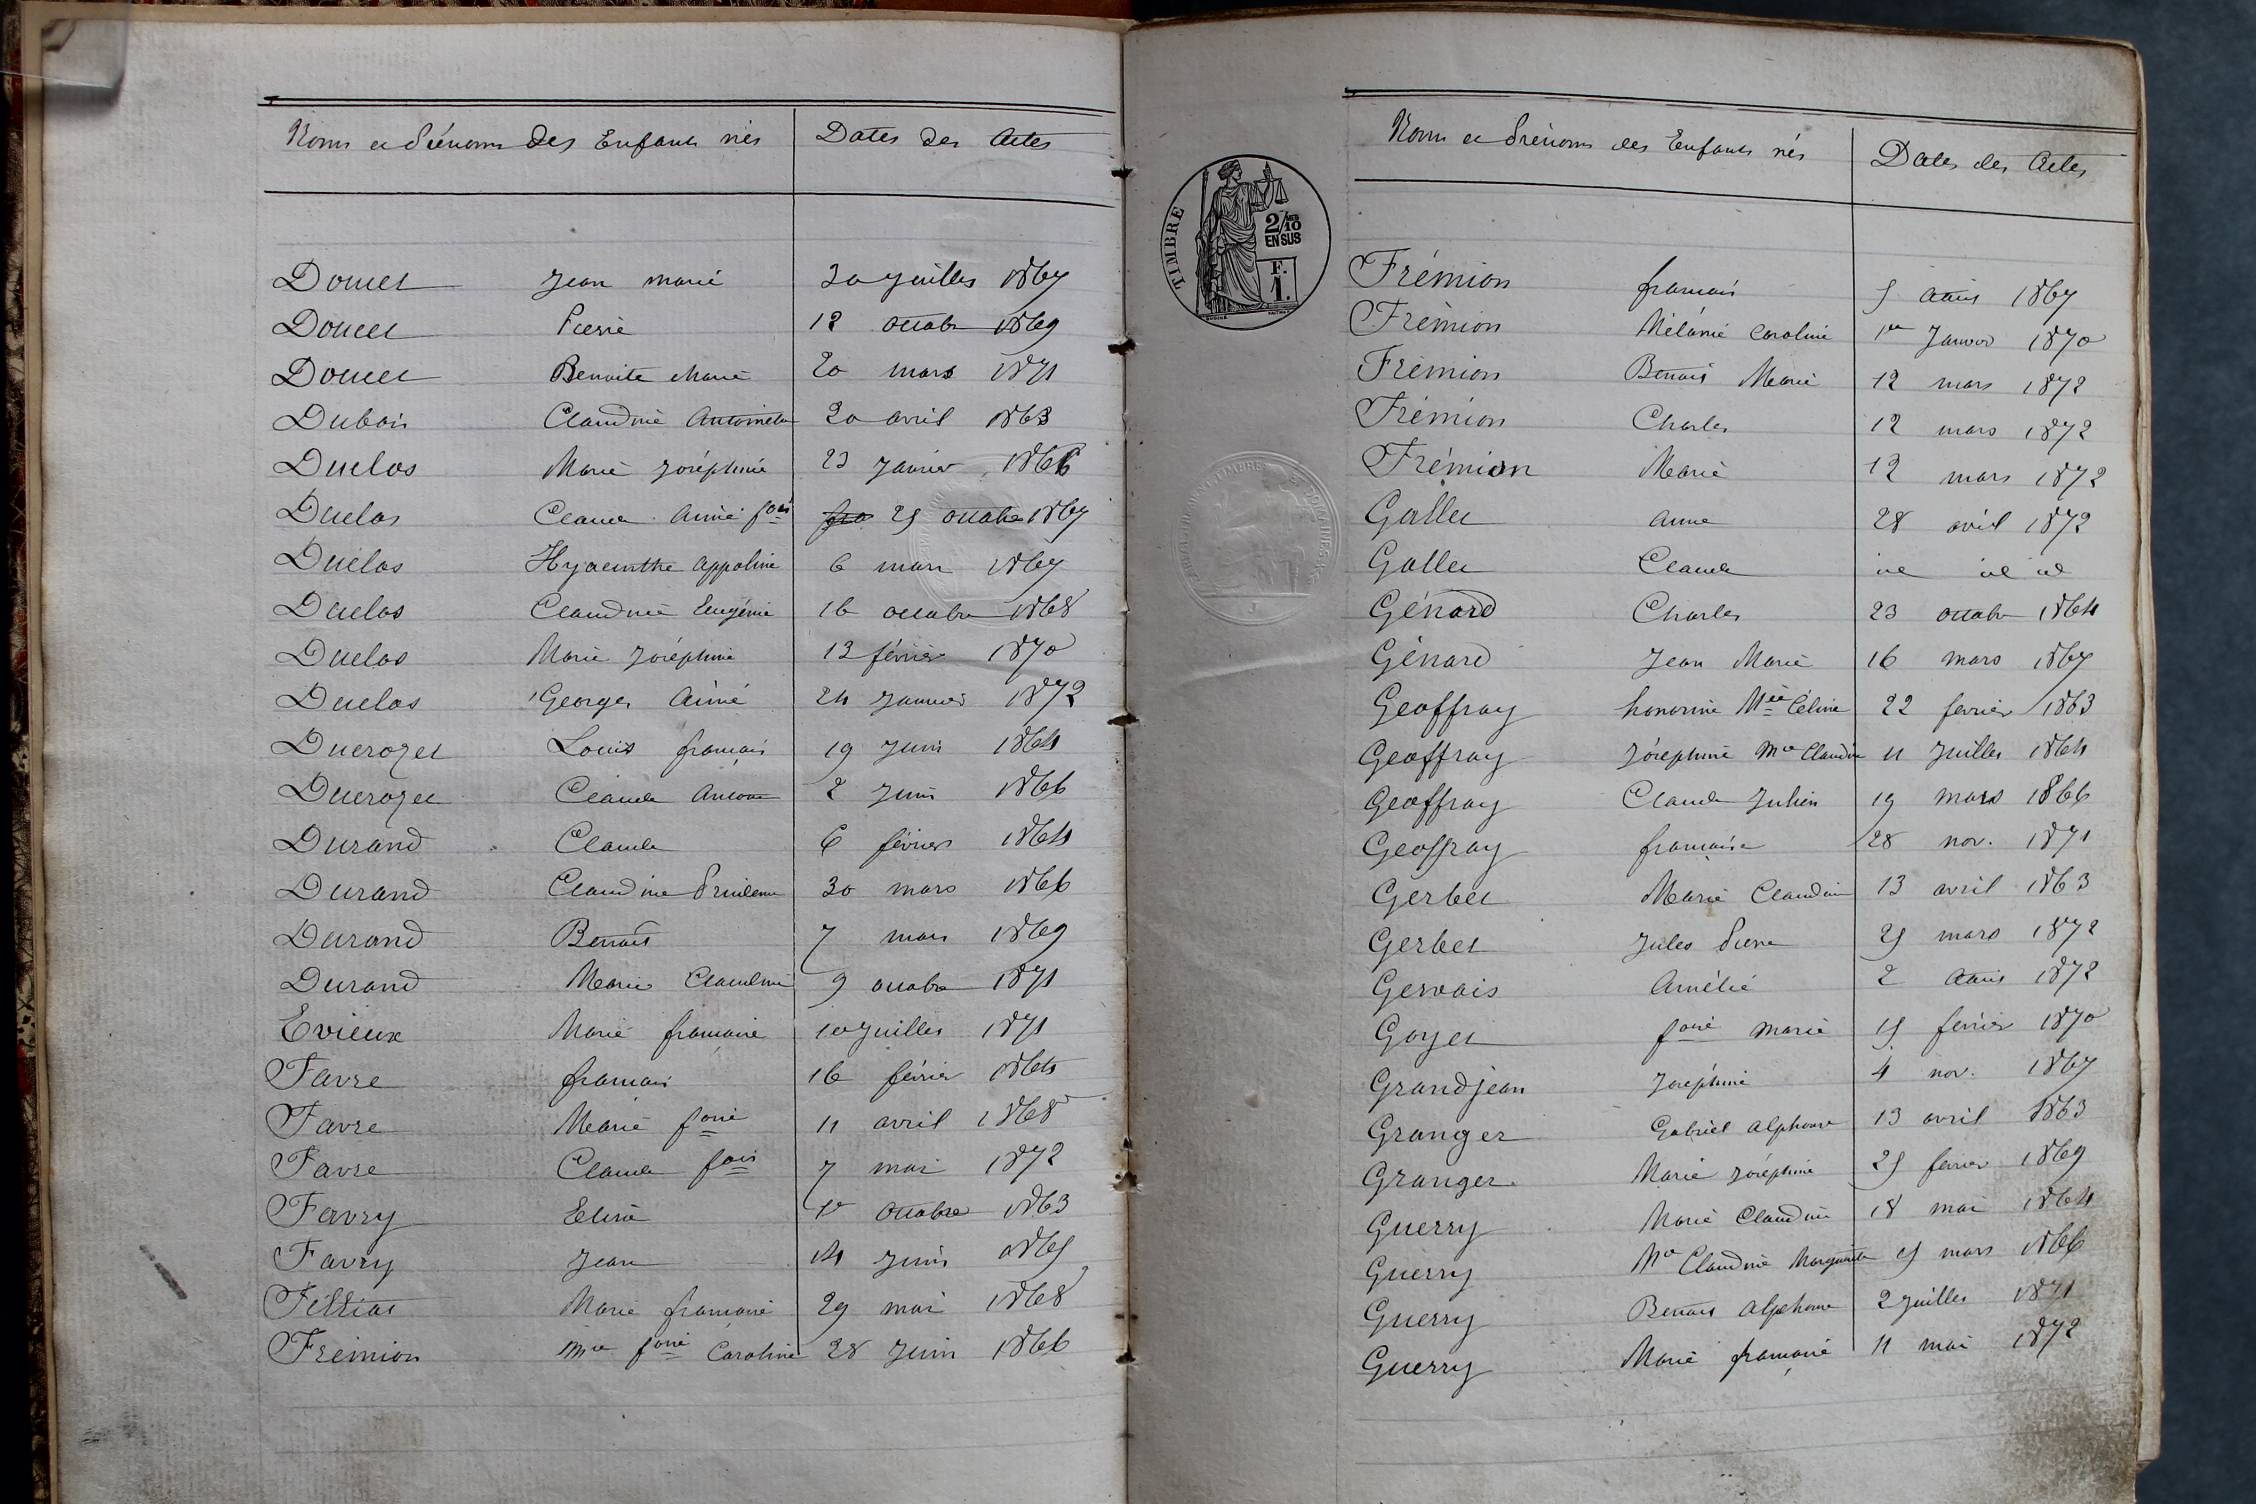 Noms et Prénoms des Enfants nés Dates des Actes
Doucet Jean Marie 30 Juillet 1867
Doucet Pierre 12 octobre 1869
Doucet Benoite Marie 20 mars 1871
Dubois Claudine Antoinette 20 avril 1863
Duclos Marie Joséphine 23 Janvier 1866
Duclos Claude Aimé fois 25 octobre 1867
Duclos Hyacinthe Appoline 6 mars 1867
Duclos Claudine Eugénie 16 octobre 1868
Duclos Marie Joséphine 13 février 1870
Duclos Georges Aimé 24 Janvier 1872
Ducrozet Louis françois 19 Juin 1864
Ducrozet Claude Antoine 2 Juin 1866
Durand Claude 6 février 1864
Durand Claudine Prudence 30 mars 1866
Durand Benoit 7 mars 1869
Durand Marie Claudine 9 octobre 1871
Evieux Marie françoise 10 Juillet 1871
Favre françois 16 février 1864
Favre Marie foise 11 avril 1868
Favre Claude fois 7 mai 1872
Favry Elisa 1er octobre 1863
Favry Jean 14 Juin 1865
Fillias Marie françoise 29 mai 1868
Frémion Mie foise Caroline 28 Juin 1866
TIMBRE
2/10
EN SUS
F.
1.
Noms et Prénoms des Enfants nés Dates des Actes
Frémion françois 5 août 1867
Frémion Mélanie Caroline 1er Janvier 1870
Frémion Benoit Marie 12 mars 1872
Frémion Charles 12 mars 1872
Frémion Marie 12 mars 1872
Gallet Anne 28 avril 1872
Gallet Claude id id id
Génard Charles 23 octobre 1864
Génard Jean Marie 16 mars 1867
Geoffray honorine Mie Céline 22 février 1863
Geoffray Joséphine Mie Claudine 11 Juillet 1864
Geoffray Claude Julien 19 mars 1866
Geoffray françoise 28 nov. 1871
Gerbet Marie Claudine 13 avril 1863
Gerbet Jules Pierre 25 mars 1872
Gervais Amélie 2 août 1872
Goyet foise Marie 15 février 1870
Grandjean Joséphine 4 nov. 1867
Granger Gabriel Alphonse 13 avril 1863
Granger Marie Joséphine 25 février 1869
Guerry Marie Claudine 18 mai 1864
Guerry Mie Claudine Marguerite 15 mars 1866
Guerry Benoit Alphonse 2 Juillet 1871
Guerry Marie françoise 11 mai 1872